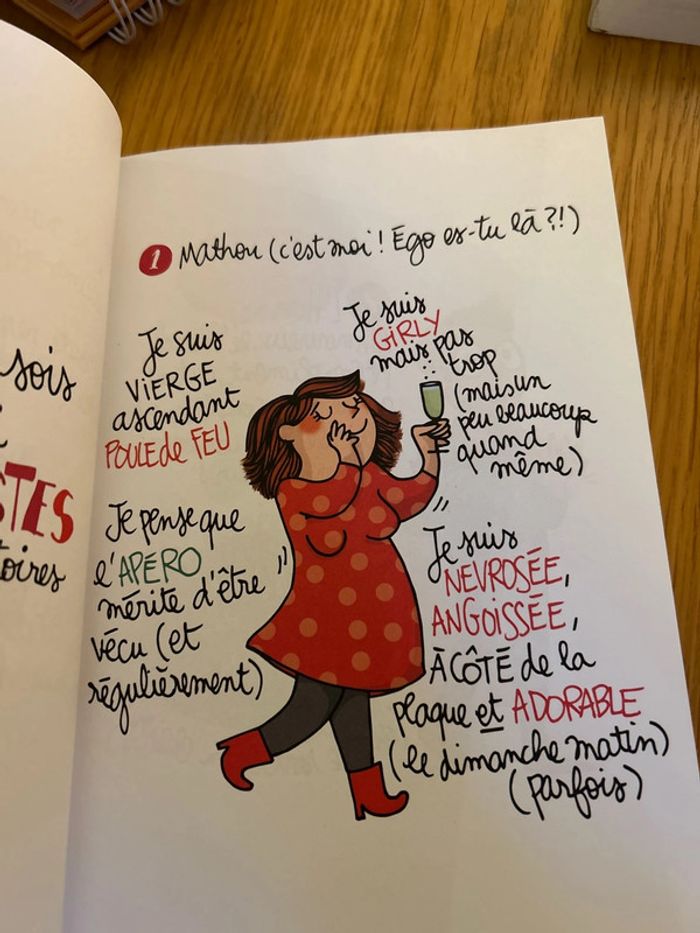 sois
STES
toires
1 Mathou (c'est moi ! Ego es-tu là ?!)
Je suis
VIERGE
ascendant
POULE de FEU
Je suis
GIRLY
mais pas
trop
(mais un
peu beaucoup
quand
même)
Je pense que
l'APÉRO
mérite d'être
vécu (et
régulièrement)
Je suis
NEVROSÉE,
ANGOISSÉE,
À CÔTÉ de la
plaque et ADORABLE
(le dimanche matin)
(parfois)